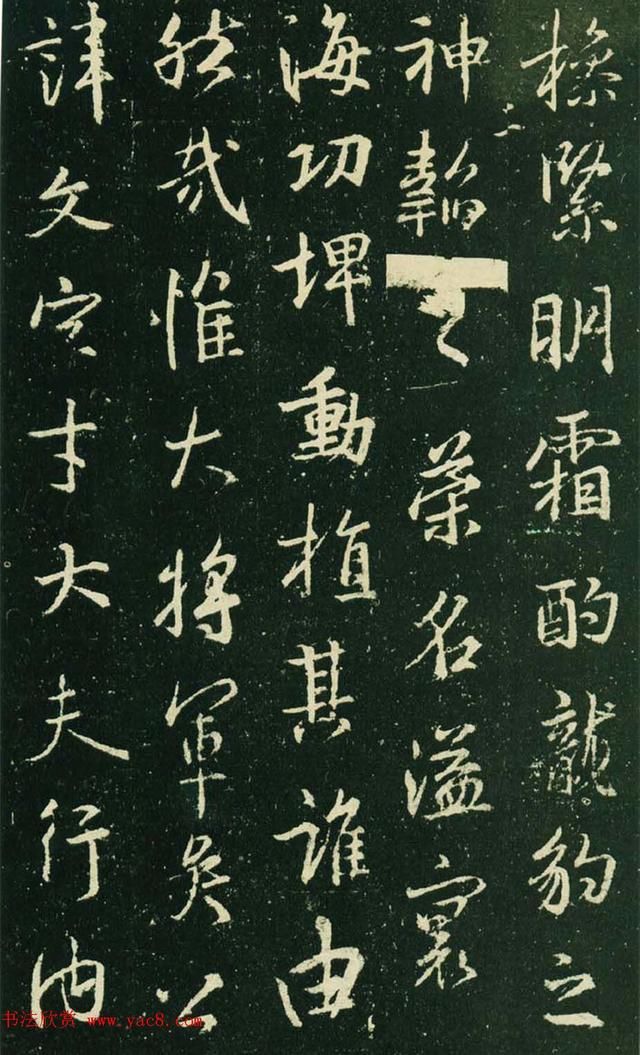 操緊明霜酌龍豹之
神韜之榮名溢寰
海功埤動植其誰由
然哉惟大將軍吳公
諱文字才大夫行內
书法欣赏 www.yac8.com